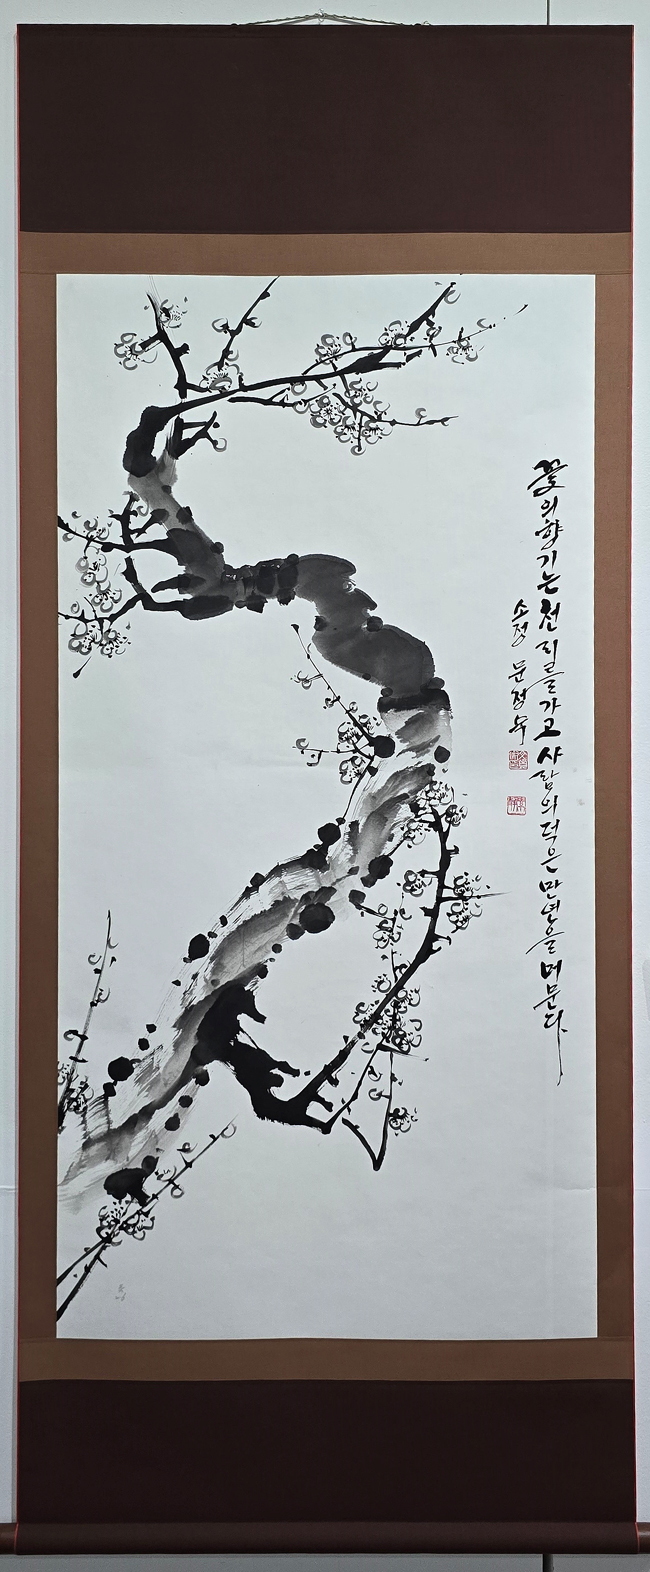 꽃의 향기는 천지를 가고 사람의 덕은 만년을 머문다
소정 문정숙